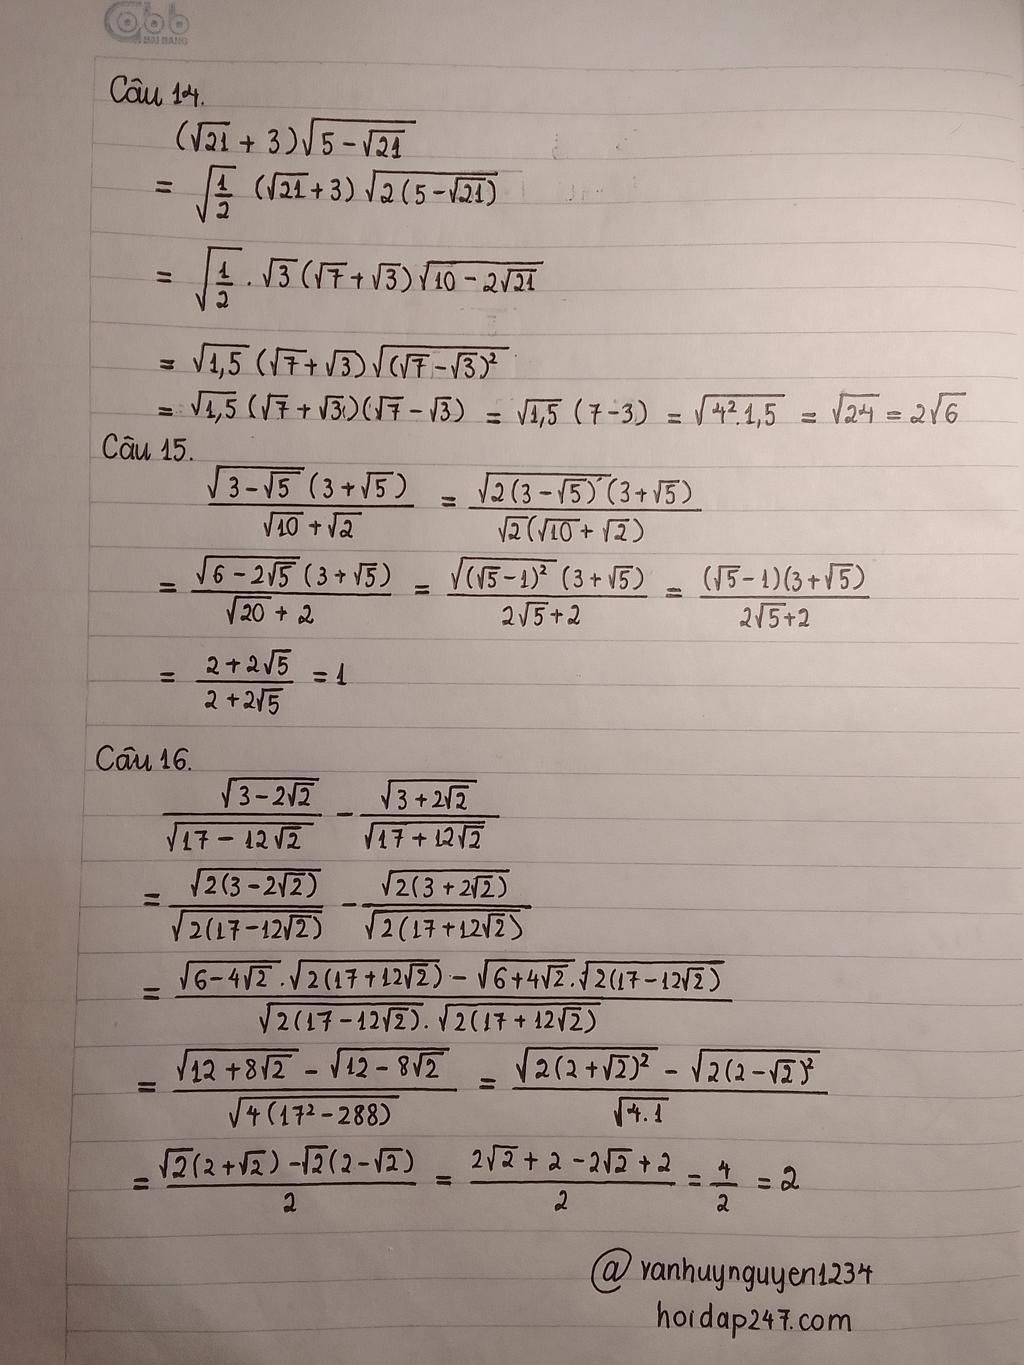 abb
HAI BANG
Câu 14.
(√21 + 3)√(5 − √21)
= √(1/2) (√21 + 3) √(2(5 − √21))
= √(1/2) . √3 (√7 + √3) √(10 − 2√21)
= √1,5 (√7 + √3) √((√7 − √3)²)
= √1,5 (√7 + √3)(√7 − √3) = √1,5 (7 − 3) = √(4².1,5) = √24 = 2√6
Câu 15.
(√(3 − √5) (3 + √5))/(√10 + √2) = (√(2(3 − √5)) (3 + √5))/(√2(√10 + √2))
= (√(6 − 2√5) (3 + √5))/(√20 + 2) = (√((√5 − 1)²) (3 + √5))/(2√5 + 2) = ((√5 − 1)(3 + √5))/(2√5 + 2)
= (2 + 2√5)/(2 + 2√5) = 1
Câu 16.
√(3 − 2√2)/√(17 − 12√2) − √(3 + 2√2)/√(17 + 12√2)
= √(2(3 − 2√2))/√(2(17 − 12√2)) − √(2(3 + 2√2))/√(2(17 + 12√2))
= (√(6 − 4√2) . √(2(17 + 12√2)) − √(6 + 4√2) . √(2(17 − 12√2)))/(√(2(17 − 12√2)) . √(2(17 + 12√2)))
= (√(12 + 8√2) − √(12 − 8√2))/√(4(17² − 288)) = (√(2(2 + √2)²) − √(2(2 − √2)²))/√(4.1)
= (√2(2 + √2) − √2(2 − √2))/2 = (2√2 + 2 − 2√2 + 2)/2 = 4/2 = 2
@vanhuynguyen1234
hoidap247.com